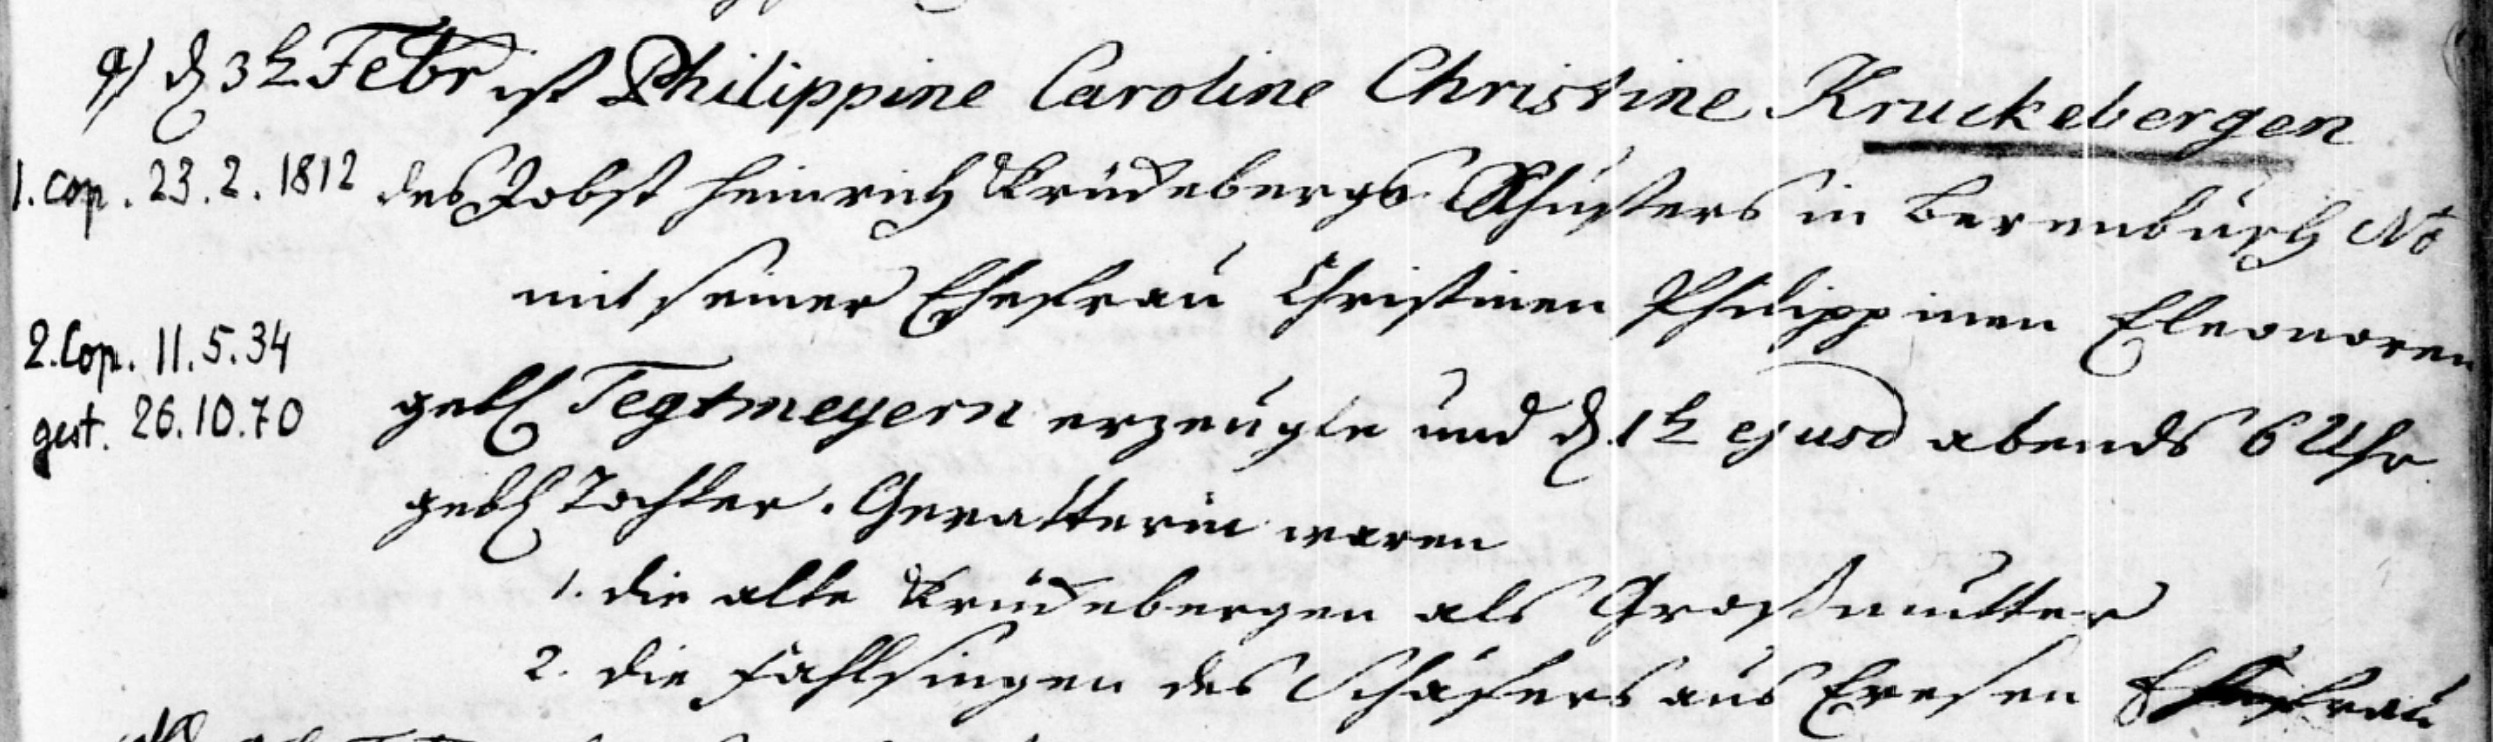 9) d 3t Febr ist Philippine Caroline Christine Kruckebergen
1. cop. 23.2.1812 des Jobst Heinrich Krückebergs Schusters in Berenburg No
mit seiner Ehefrau Christinen Philippinen Eleonoren
2. Cop. 11.5.34
gebh Tegtmeyern erzeugte und d. 1t ejusd abends 6 Uhr
gest. 26.10.70
gebh Tochter. Gevatterin waren
1. die alte Krückebergen als Großmutter
2. die des Schäfers aus Ehefrau